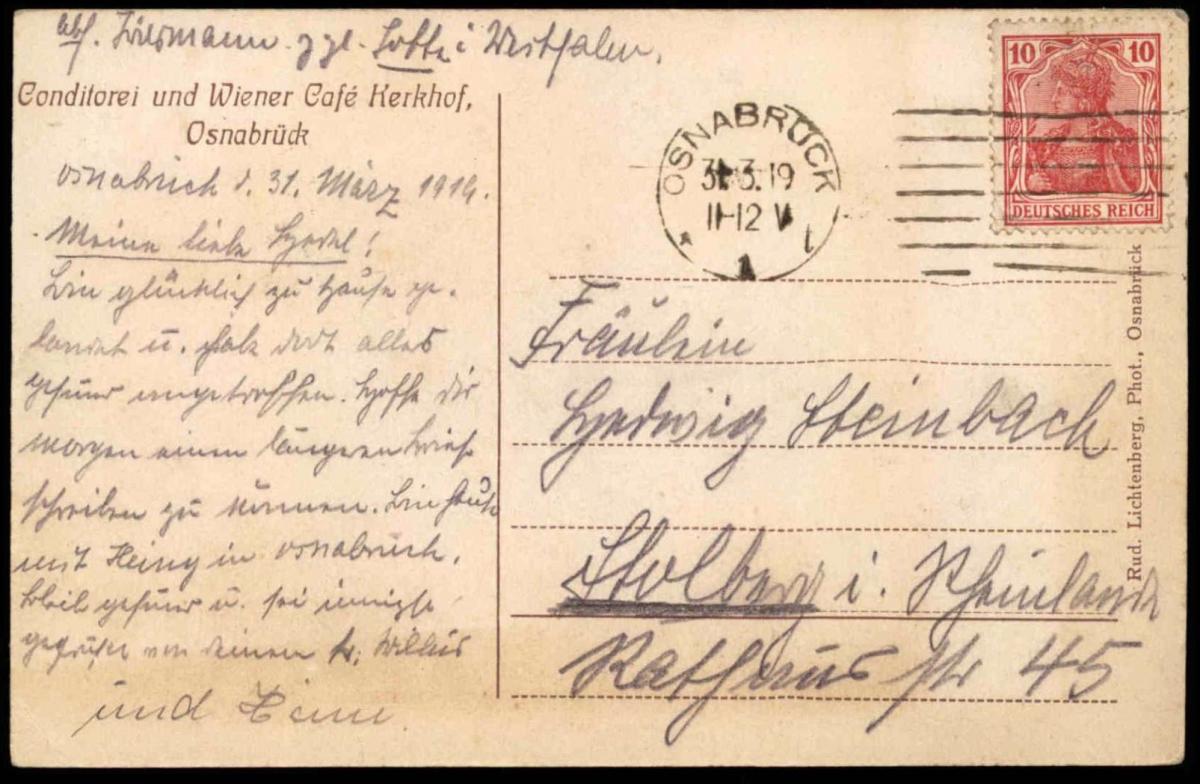 Abs. Zursmann z. Zt. Lotte i Westfalen.
Conditorei und Wiener Café Kerkhof,
Osnabrück
Osnabrück d. 31. März 1919.
Meine liebe Hedel!
Bin glücklich zu Hause ge-
landet u. habe dort alles
gesund angetroffen. Hoffe dir
morgen einen längeren Brief
schreiben zu können. Bin heute
mit Heinz in Osnabrück.
Bleib gesund u. sei innigst
gegrüßt von deinem tr. Willus
und
OSNABRÜCK
31.3.19
11-12 V
1
10 10
DEUTSCHES REICH
Fräulein
Hedwig Steinbach
Stolberg i. Rheinland
Rathaus str 45
Rud. Lichtenberg, Phot., Osnabrück